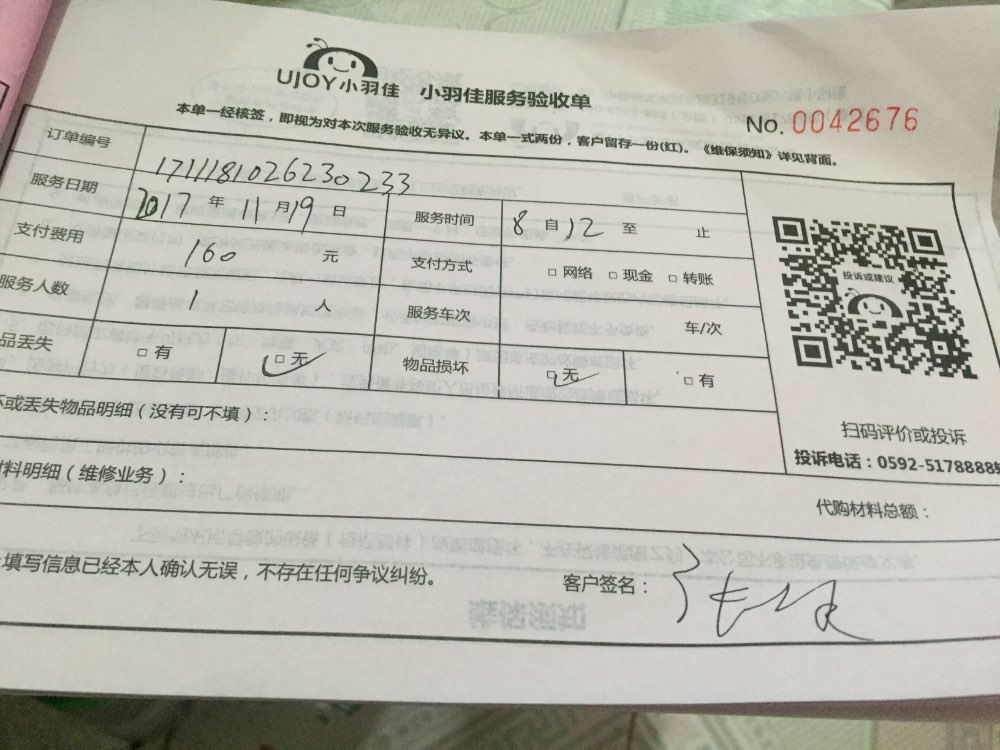 UJOY小羽佳 小羽佳服务验收单
No. 0042676
本单一经核签，即视为对本次服务验收无异议。本单一式两份，客户留存一份(红)。《维保须知》详见背面。
订单编号 1711181026230233
服务日期 2017 年 11 月 19 日 服务时间 8 自 12 至 止
支付费用 160 元 支付方式 □ 网络 □ 现金 □ 转账
服务人数 1 人 服务车次 车/次
品丢失 □ 有 □ 无 物品损坏 □ 无 □ 有
投诉或建议
扫码评价或投诉
投诉电话：0592-5178888
坏或丢失物品明细（没有可不填）：
材料明细（维修业务）： 代购材料总额：
填写信息已经本人确认无误，不存在任何争议纠纷。 客户签名：
维保须知